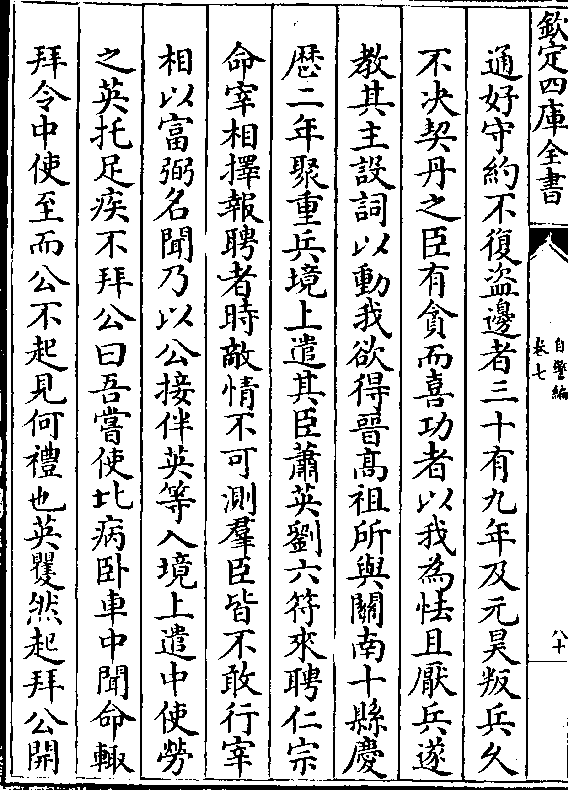 欽定四庫全書
自警編
卷七
八十
通好守約不復盜邊者三十有九年及元昊叛兵久
不决契丹之臣有貪而喜功者以我為怯且厭兵遂
教其主設詞以動我欲得晉髙祖所與關南十縣慶
歴二年聚重兵境上遣其臣蕭英劉六符來聘仁宗
命宰相擇報聘者時敵情不可測羣臣皆不敢行宰
相以富弼名聞乃以公接伴英等入境上遣中使勞
之英托足疾不拜公曰吾嘗使北病卧車中聞命輙
拜令中使至而公不起見何禮也英矍然起拜公開